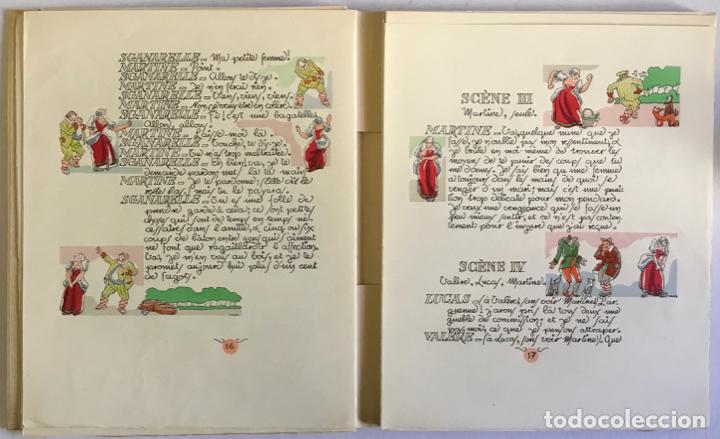 SGANARELLE – Ma petite femme!
MARTINE – Point.
SGANARELLE – Allons, te dis-je.
MARTINE – Je n'en ferai rien.
SGANARELLE – Viens, viens, viens.
MARTINE – Non, je veux être en colère.
SGANARELLE – Fi! c'est une bagatelle.
Allons, allons!
MARTINE – Laisse-moi là.
SGANARELLE – Touche, te dis-je.
MARTINE – Tu m'as trop maltraitée.
SGANARELLE – Eh bien! va, je te
demande pardon; met là ta main.
MARTINE – Je te pardonne; (elle dit le
reste bas) mais tu le payeras.
SGANARELLE – Tu es une folle de
prendre garde à cela; ce sont petites
choses qui sont de temps en temps né-
cessaires dans l'amitié, et cinq ou six
coups de bâton entre gens qui s'aiment
ne font que ragaillardir l'affection.
Va, je m'en vais au bois, et je te
promets aujourd'hui plus d'un cent
de fagots.
16
SCÈNE III
Martine, seule.
MARTINE – Va, quelque mine que je
fasse, je n'oublie pas mon ressentiment, et
je brûle en moi-même de trouver les
moyens de te punir des coups que tu
me donnes. Je sais bien qu'une femme
a toujours dans les mains de quoi se
venger d'un mari; mais c'est une puni-
tion trop délicate pour mon pendard.
Je veux une vengeance qui se fasse un
peu mieux sentir, et ce n'est pas conten-
tement pour l'injure que j'ai reçue.
SCÈNE IV
Valère, Lucas, Martine.
LUCAS – (à Valère, sans voir Martine) Par-
guenne! j'avons pris là tous deux une
gueble de commission; et je ne sais
pas, moi, ce que je pensons attraper.
VALÈRE – (à Lucas, sans voir Martine). Que
17
todocoleccion.net